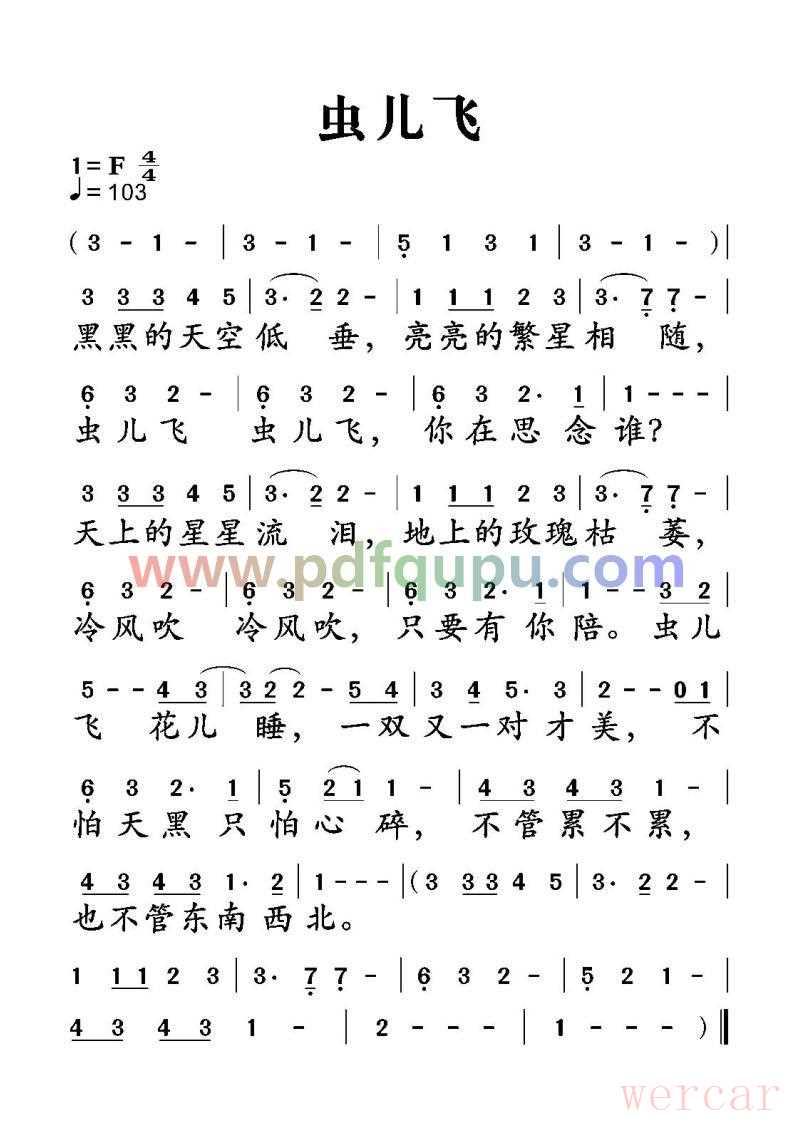 虫儿飞
1=F 4/4
♩=103
( 3 - 1 - | 3 - 1 - | 5̣ 1 3 1 | 3 - 1 - ) |
3 3 3 4 5 | 3· 2 2 - | 1 1 1 2 3 | 3· 7̣ 7̣ - |
黑黑的天空低 垂，亮亮的繁星相 随，
6̣ 3 2 - | 6̣ 3 2 - | 6̣ 3 2· 1 | 1 - - - |
虫儿飞 虫儿飞，你在思念谁？
3 3 3 4 5 | 3· 2 2 - | 1 1 1 2 3 | 3· 7̣ 7̣ - |
天上的星星流 泪，地上的玫瑰枯 萎，
www.pdfqupu.com
6̣ 3 2 - | 6̣ 3 2 - | 6̣ 3 2· 1 | 1 - - 3 2 |
冷风吹 冷风吹，只要有你陪。虫儿
5 - - 4 3 | 3 2 2 - 5 4 | 3 4 5· 3 | 2 - - 0 1 |
飞 花儿睡，一双又一对才美，不
6̣ 3 2· 1 | 5̣ 2 1 1 - | 4 3 4 3 1 - |
怕天黑只怕心碎，不管累不累，
4 3 4 3 1· 2 | 1 - - - | ( 3 3 3 4 5 | 3· 2 2 - |
也不管东南西北。
1 1 1 2 3 | 3· 7̣ 7̣ - | 6̣ 3 2 - | 5̣ 2 1 - |
4 3 4 3 1 - | 2 - - - | 1 - - - ) ‖
wercar